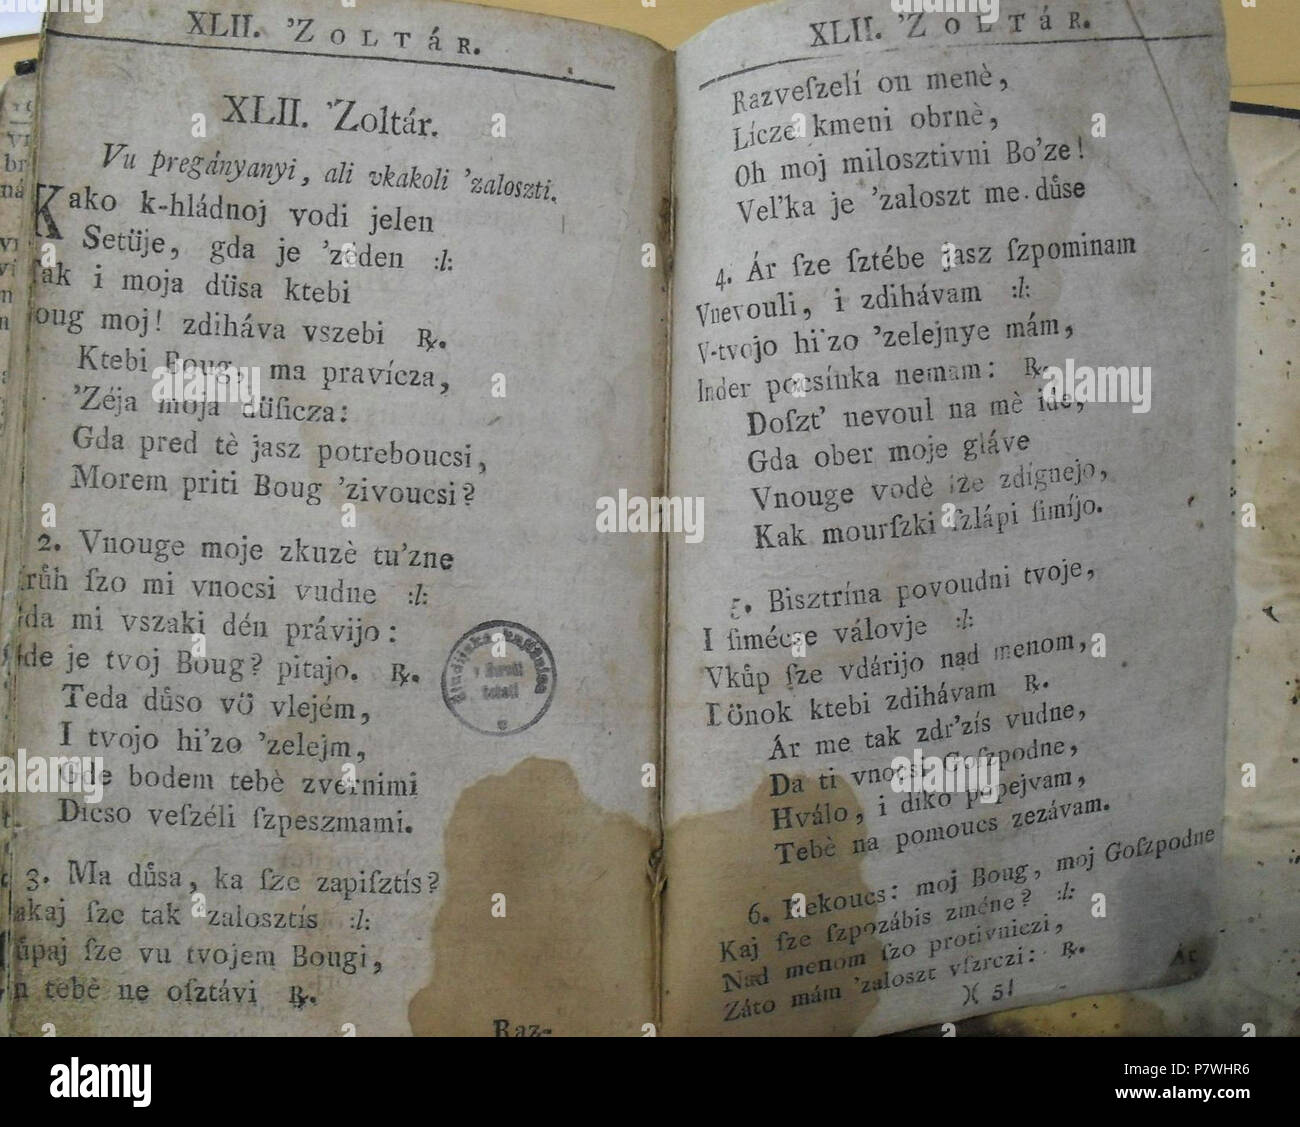 XLII. 'ZOLTÁR.
XLII. 'Zoltár.
Vu pregányanyi, ali vkakoli 'zaloszti.
Kako k-hládnoj vodi jelen
Setüje, gda je 'zéden :l:
Tak i moja düsa ktebi
oug moj! zdiháva vszebi ℞.
Ktebi Boug, ma pravícza,
'Zéja moja düſicza:
Gda pred tè jasz potreboucsi,
Morem priti Boug 'zivoucsi?
2. Vnouge moje zkuzè tu'zne
krůh ſzo mi vnocsi vudne :l:
da mi vszaki dén právijo:
de je tvoj Boug? pitajo. ℞.
Teda důso vö vlejém,
I tvojo hi'zo 'zelejm,
Gde bodem tebè zvernimi
Dicso veſzéli ſzpeszmami.
3. Ma důsa, ka ſze zapiſztís?
akaj ſze tak zalosztís :l:
ůpaj ſze vu tvojem Bougi,
n tebè ne oſztávi ℞.
Raz-
XLII. 'ZOLTÁR.
Razveſzelí on menè,
Lícze kmeni obrnè,
Oh moj milosztivni Bo'ze!
Vel'ka je 'zaloszt me důse
4. Ár ſze ſztébe jasz ſzpominam
Vnevouli, i zdihávam :l:
V-tvojo hi'zo 'zelejnye mám,
Inder pocsínka nemam: ℞.
Doſzt' nevoul na mè ide,
Gda ober moje gláve
Vnouge vodè ſze zdígnejo,
Kak mourſzki ſzlápi ſimíjo.
5. Bisztrína povoudni tvoje,
I ſimécse válovje :l:
Vkůp ſze vdárijo nad menom,
I önok ktebi zdihávam ℞.
Ár me tak zdr'zís vudne,
Da ti vnocsi Goſzpodne,
Hválo, i diko popejvam,
Tebè na pomoucs zezávam.
6. Rekoucs: moj Boug, moj Goſzpodne
Kaj ſze ſzpozábis zméne? :l:
Nad menom ſzo protivniczi,
Záto mám 'zaloszt vſzrczi: ℞.
)( 5
Ár
alamy
Image ID: P7WHR6
www.alamy.com